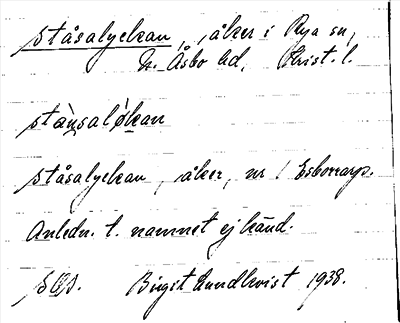 Ståsalyckan, åker i Rya sn,
N. Åsbo hd, Krist. l.
ståsalyckan, åker, nr 1 Esborrarp.
Anledn. t. namnet ej känd.
Birgit Lundkvist 1938.